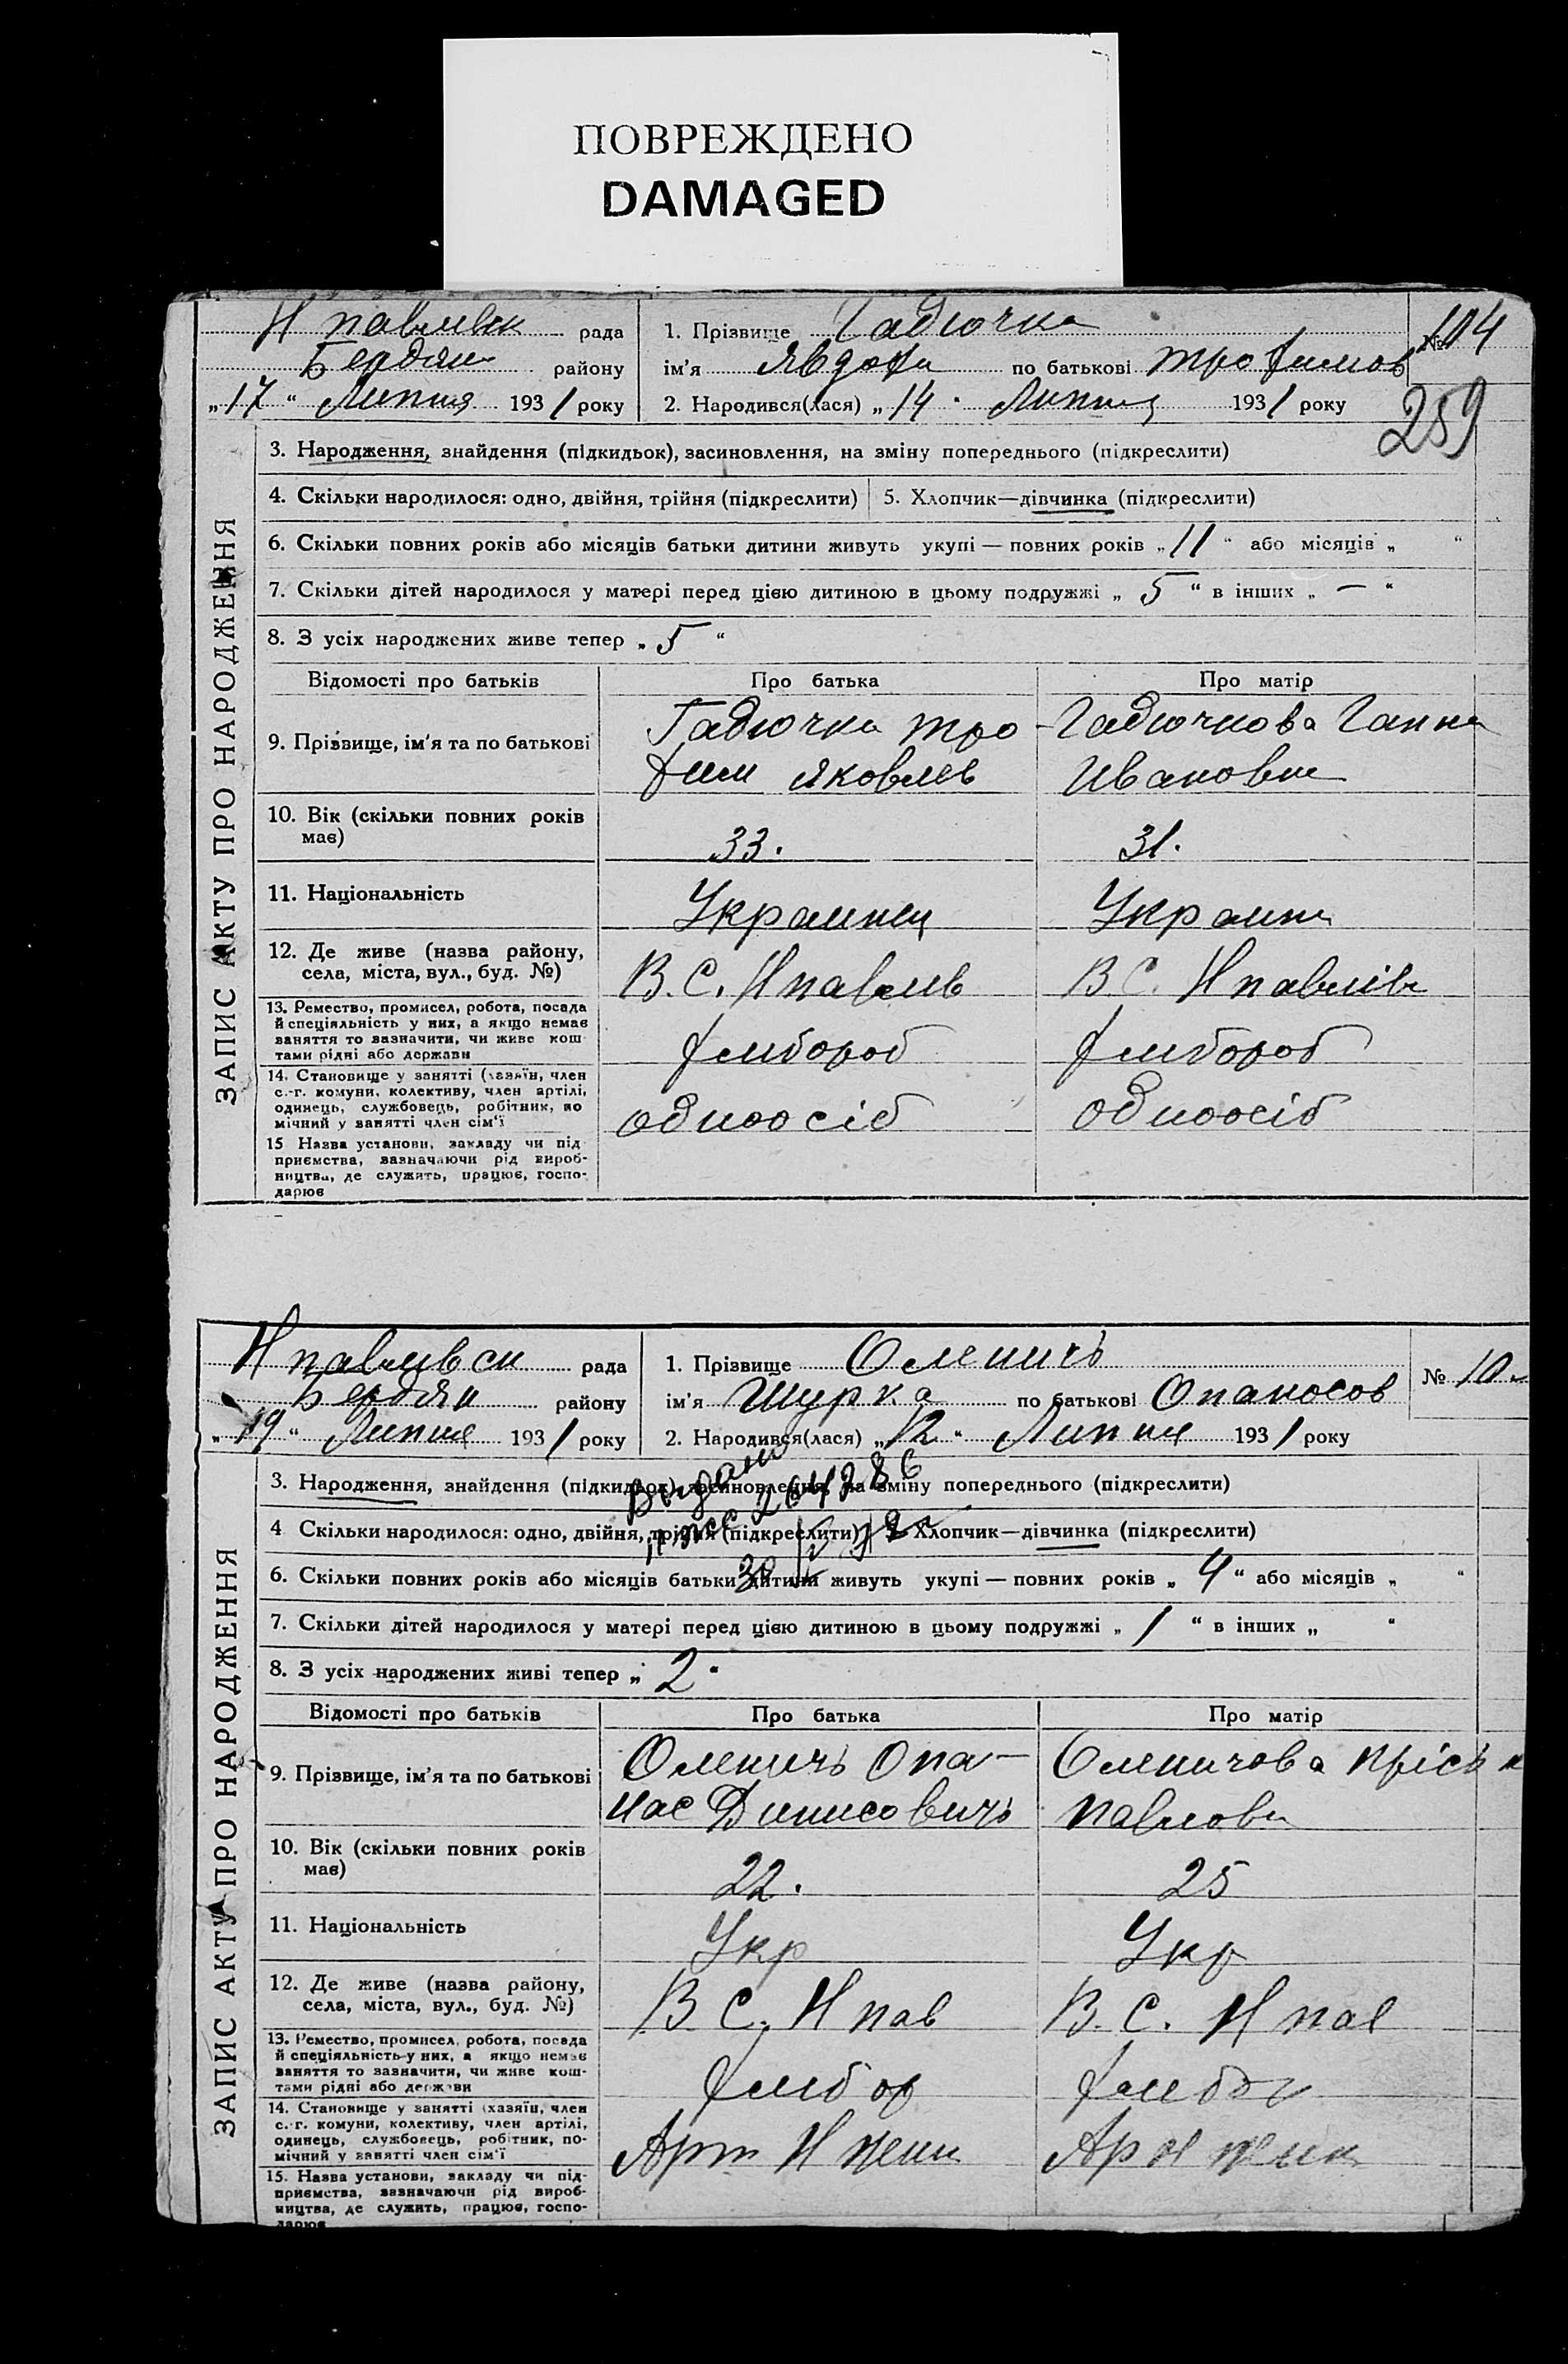 ПОВРЕЖДЕНО
DAMAGED
Н павлівск рада
Бердян району
„17“ Липня 1931 року
1. Прізвище Гадючка
ім'я Явдоха по батькові Трофимов
2. Народився(лася) „14“ Липня 1931 року
№ 104
259
ЗАПИС АКТУ ПРО НАРОДЖЕННЯ
3. Народження, знайдення (підкидьок), засиновлення, на зміну попереднього (підкреслити)
4. Скільки народилося: одно, двійня, трійня (підкреслити) 5. Хлопчик—дівчинка (підкреслити)
6. Скільки повних років або місяців батьки дитини живуть укупі — повних років „11“ або місяців „ “
7. Скільки дітей народилося у матері перед цією дитиною в цьому подружжі „5“ в інших „—“
8. З усіх народжених живе тепер „5“
Відомості про батьків Про батька Про матір
9. Прізвище, ім'я та по батькові
Гадючка Тро-
фим Яковлев
Гадючкова Ганна
Ивановна
10. Вік (скільки повних років
має)
33. 31.
11. Національність
Украинец Украин
12. Де живе (назва району,
села, міста, вул., буд. №)
В. С. Н павлив В С. Н павлів
13. Ремество, промисел, робота, посада
й спеціяльність у них, а якщо немає
заняття то зазначити, чи живе кош
тами рідні або держави
Хлибороб Хлибороб
14. Становище у занятті (хазяїн, член
с.-г. комуни, колективу, член артілі,
одинець, службовець, робітник, по
мічний у занятті член сім'ї
одноосіб одноосіб
15 Назва установи, закладу чи під
приємства, зазначаючи рід вироб-
ництва, де служить, працює, госпо-
дарює
Н павливск рада
Бердян району
„19“ Липня 1931 року
1. Прізвище Оленичъ
ім'я Шурка по батькові Опанасов
2. Народився(лася) „12“ Липня 1931 року
№ 10
ЗАПИС АКТУ ПРО НАРОДЖЕННЯ
3. Народження, знайдення (підкидьок), засиновлення, на зміну попереднього (підкреслити)
4 Скільки народилося: одно, двійня, трійня (підкреслити) 5. Хлопчик—дівчинка (підкреслити)
6. Скільки повних років або місяців батьки дитини живуть укупі — повних років „4“ або місяців „ “
7. Скільки дітей народилося у матері перед цією дитиною в цьому подружжі „1“ в інших „ “
8. З усіх народжених живі тепер „2“
Відомості про батьків Про батька Про матір
9. Прізвище, ім'я та по батькові
Оленичъ Опа-
нас Динисовичъ
Оленичова Пріська
Павлова
10. Вік (скільки повних років
має)
22. 25
11. Національність
Укр Укр
12. Де живе (назва району,
села, міста, вул., буд. №)
В С. Н пав В. С. Н пав
13. Ремество, промисел, робота, посада
й спеціяльність у них, а якщо немає
заняття то зазначити, чи живе кош-
тами рідні або держави
Хлибор
14. Становище у занятті (хазяїн, член
с.-г. комуни, колективу, член артілі,
одинець, службовець, робітник, по-
мічний у занятті член сім'ї
Арт
15. Назва установи, закладу чи під-
приємства, зазначаючи рід вироб-
ництва, де служить, працює, госпо-
дарює